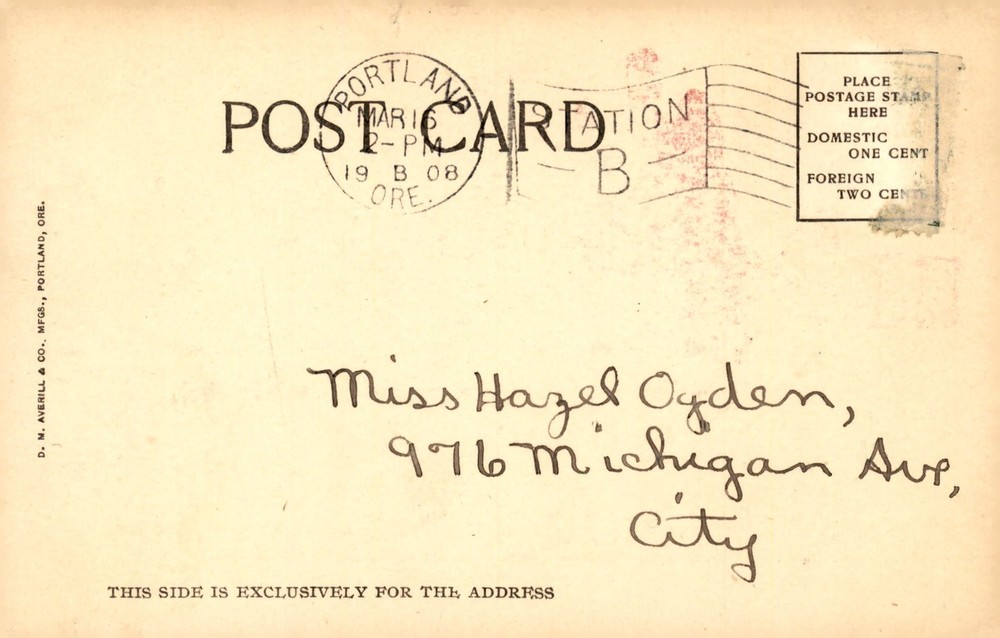 POST CARD
PORTLAND
MAR 16
2-PM
19 B 08
ORE.
STATION
B
PLACE
POSTAGE STAMP
HERE
DOMESTIC
ONE CENT
FOREIGN
TWO CENTS
D. M. AVERILL & CO. MFGS., PORTLAND, ORE.
Miss Hazel Ogden,
976 Michigan Ave,
City
THIS SIDE IS EXCLUSIVELY FOR THE ADDRESS